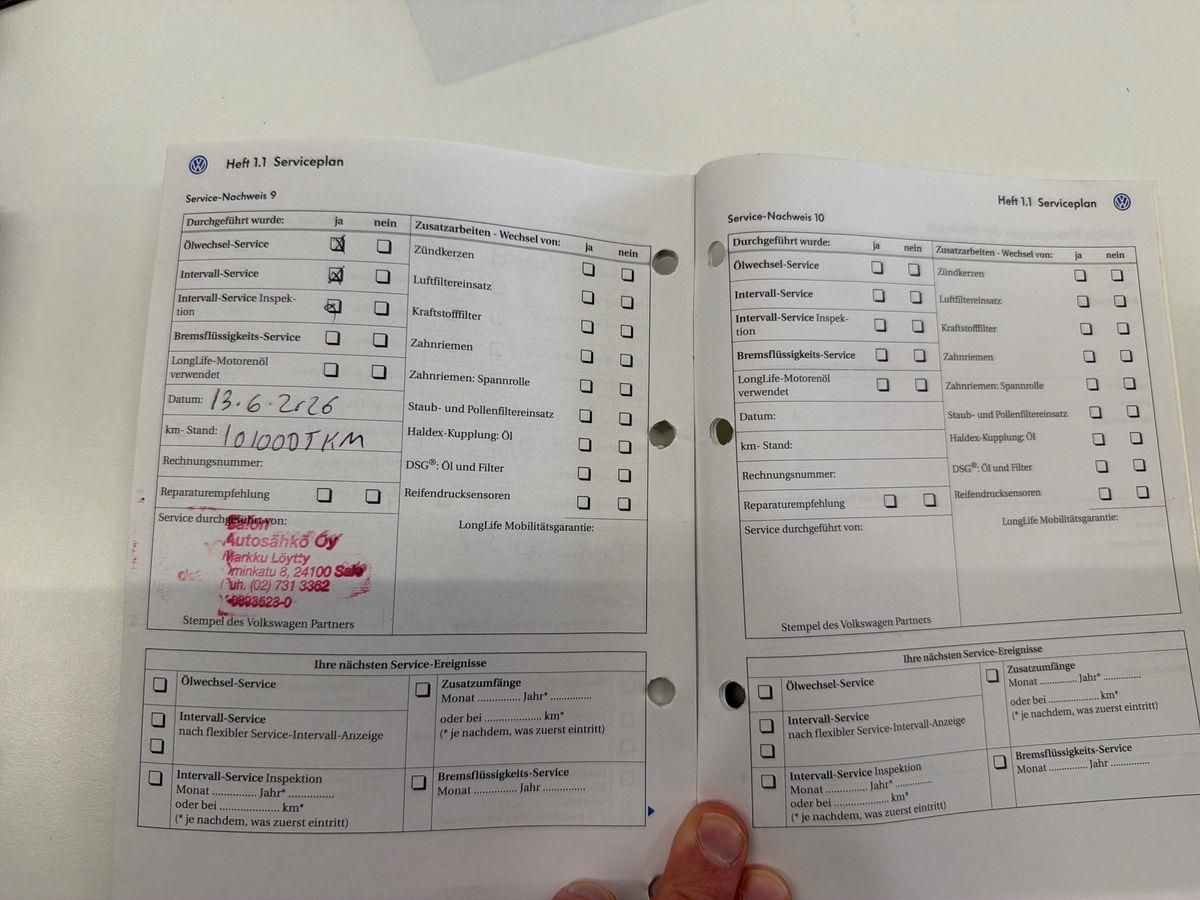 Heft 1.1 Serviceplan
Service-Nachweis 9
Durchgeführt wurde: ja nein
Ölwechsel-Service
Intervall-Service
Intervall-Service Inspek-
tion
Bremsflüssigkeits-Service
LongLife-Motorenöl
verwendet
Datum: 13.6.2026
km- Stand: 101000TKM
Rechnungsnummer:
Reparaturempfehlung
Service durchgeführt von:
Salon
Autosähkö Oy
Markku Löytty
24100 Salo
Puh. (02) 731 3362
Stempel des Volkswagen Partners
Zusatzarbeiten - Wechsel von: ja nein
Zündkerzen
Luftfiltereinsatz
Kraftstofffilter
Zahnriemen
Zahnriemen: Spannrolle
Staub- und Pollenfiltereinsatz
Haldex-Kupplung: Öl
DSG®: Öl und Filter
Reifendrucksensoren
LongLife Mobilitätsgarantie:
Ihre nächsten Service-Ereignisse
Ölwechsel-Service
Intervall-Service
nach flexibler Service-Intervall-Anzeige
Intervall-Service Inspektion
Monat .............. Jahr* ..............
oder bei .................... km*
(* je nachdem, was zuerst eintritt)
Zusatzumfänge
Monat .............. Jahr* .............
oder bei .................... km*
(* je nachdem, was zuerst eintritt)
Bremsflüssigkeits-Service
Monat .............. Jahr .............
Heft 1.1 Serviceplan
Service-Nachweis 10
Durchgeführt wurde: ja nein
Ölwechsel-Service
Intervall-Service
Intervall-Service Inspek-
tion
Bremsflüssigkeits-Service
LongLife-Motorenöl
verwendet
Datum:
km- Stand:
Rechnungsnummer:
Reparaturempfehlung
Service durchgeführt von:
Stempel des Volkswagen Partners
Zusatzarbeiten - Wechsel von: ja nein
Zündkerzen
Luftfiltereinsatz
Kraftstofffilter
Zahnriemen
Zahnriemen: Spannrolle
Staub- und Pollenfiltereinsatz
Haldex-Kupplung: Öl
DSG®: Öl und Filter
Reifendrucksensoren
LongLife Mobilitätsgarantie:
Ihre nächsten Service-Ereignisse
Ölwechsel-Service
Intervall-Service
nach flexibler Service-Intervall-Anzeige
Intervall-Service Inspektion
Monat ............. Jahr* ............
oder bei .................... km*
(* je nachdem, was zuerst eintritt)
Zusatzumfänge
Monat ............. Jahr* ............
oder bei .................... km*
(* je nachdem, was zuerst eintritt)
Bremsflüssigkeits-Service
Monat ............. Jahr .............